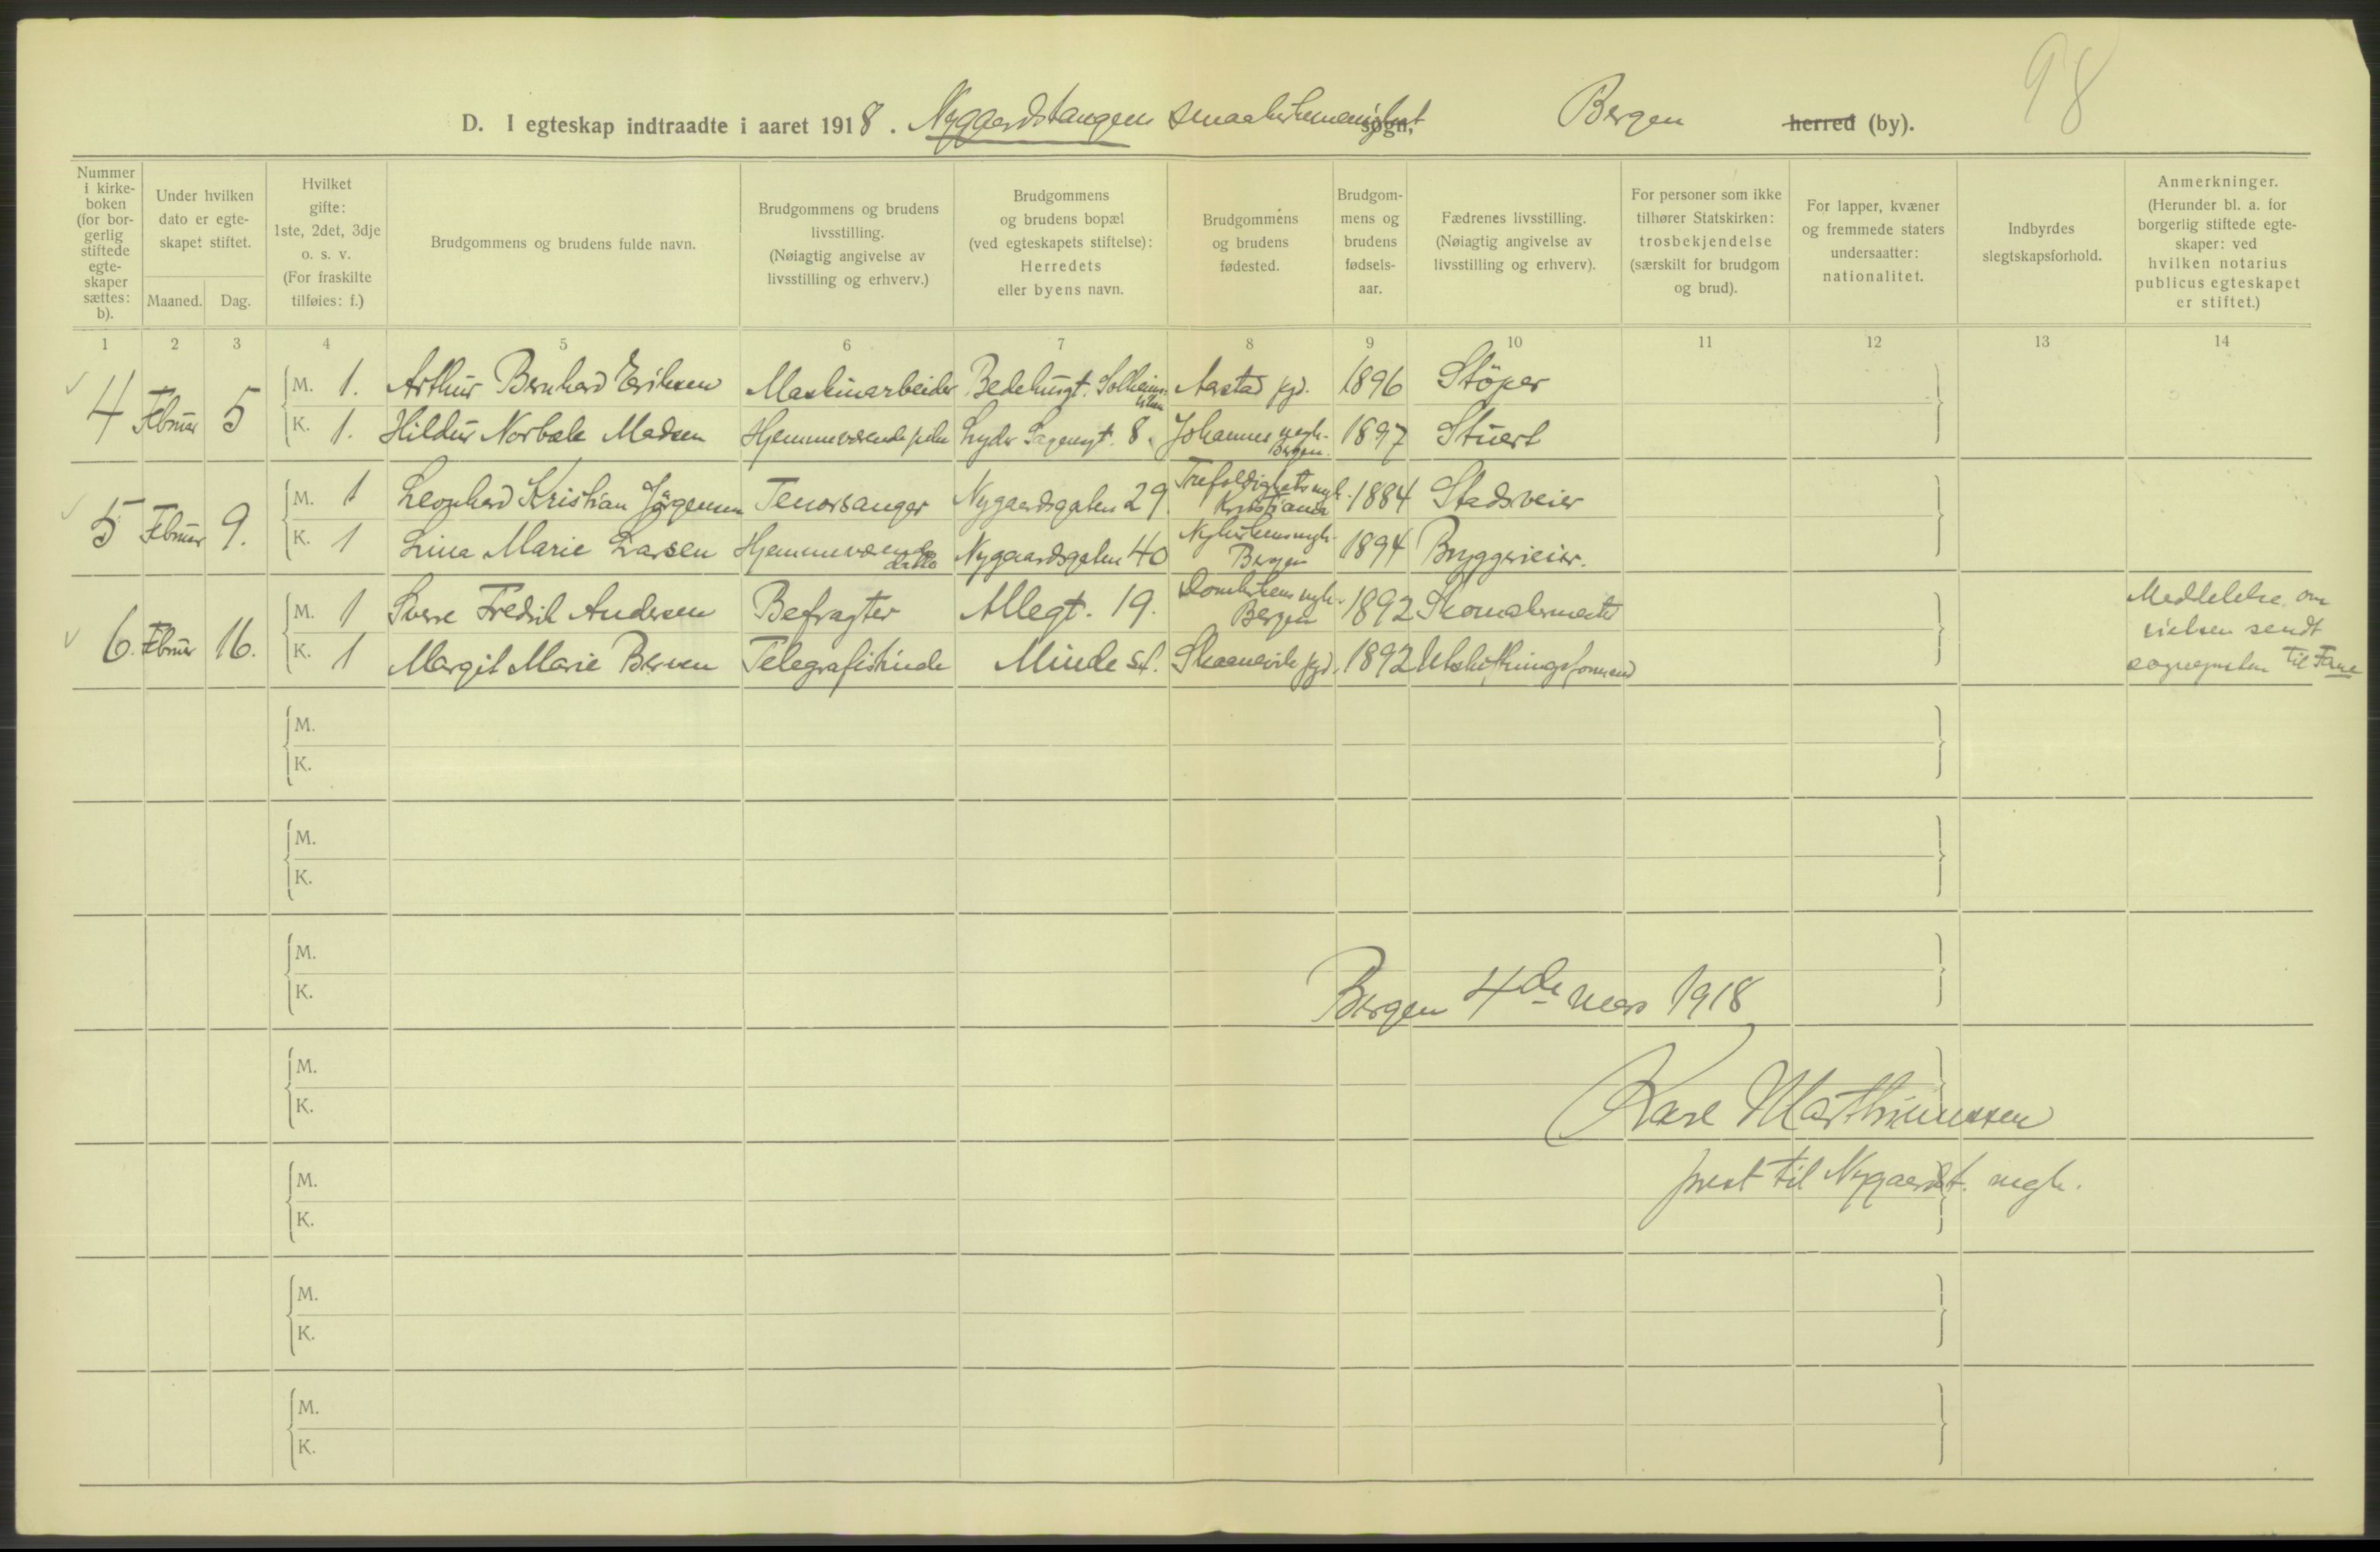 98
D. I egteskap indtraadte i aaret 1918. Nygaardstangens smaakirkemenighet sogn, Bergen herred (by).
Nummer i kirke- boken (for bor- gerlig stiftede egte- skaper sættes: b).
Under hvilken dato er egte- skapet stiftet.
Maaned. Dag.
Hvilket gifte: 1ste, 2det, 3dje o. s. v. (For fraskilte tilføies: f.)
Brudgommens og brudens fulde navn.
Brudgommens og brudens livsstilling. (Nøiagtig angivelse av livsstilling og erhverv.)
Brudgommens og brudens bopæl (ved egteskapets stiftelse): Herredets eller byens navn.
Brudgommens og brudens fødested.
Brudgom- mens og brudens fødsels- aar.
Fædrenes livsstilling. (Nøiagtig angivelse av livsstilling og erhverv).
For personer som ikke tilhører Statskirken: trosbekjendelse (særskilt for brudgom og brud).
For lapper, kvæner og fremmede staters undersaatter: nationalitet.
Indbyrdes slegtskapsforhold.
Anmerkninger. (Herunder bl. a. for borgerlig stiftede egte- skaper: ved hvilken notarius publicus egteskapet er stiftet.)
1 2 3 4 5 6 7 8 9 10 11 12 13 14
4 Februar 5 M. 1. Arthur Bernhard Eriksen Maskinarbeider Bedehusgt. Solheims- viken Aastad pgd. 1896 Støper
K. 1. Hildur Norbale Madsen Hjemmeværende Lyder Sagensgt. 8. Johannes megh. Bergen. 1897 Stuert
5 Februar 9. M. 1 Leonhard Kristian Jørgensen Tenorsanger Nygaardsgaten 29 Trefoldighets mgh. Kristiania 1884 Stadsveier
K. 1 Lina Marie Larsen Hjemmeværende datter Nygaardsgaten 40 Nykirkens mgh. Bergen 1894 Bryggerieier.
6. Februar 16. M. 1 Sverre Fredrik Andersen Befragter Allegt. 19. Domkirkens mgh. Bergen 1892 Skomakermester
K. 1 Margit Marie Berven Telegrafistinde Minde st. Skaanevik pgd. 1892 Utskiftningsformand
Meddelelse om
vielsen sendt
sogneprsten til Fane
M.
K.
M.
K.
M.
K.
Bergen 4de mars 1918
M.
K.
Karl Marthinussen
M.
K.
prest til Nygaardst. megh.
M.
K.
M.
K.